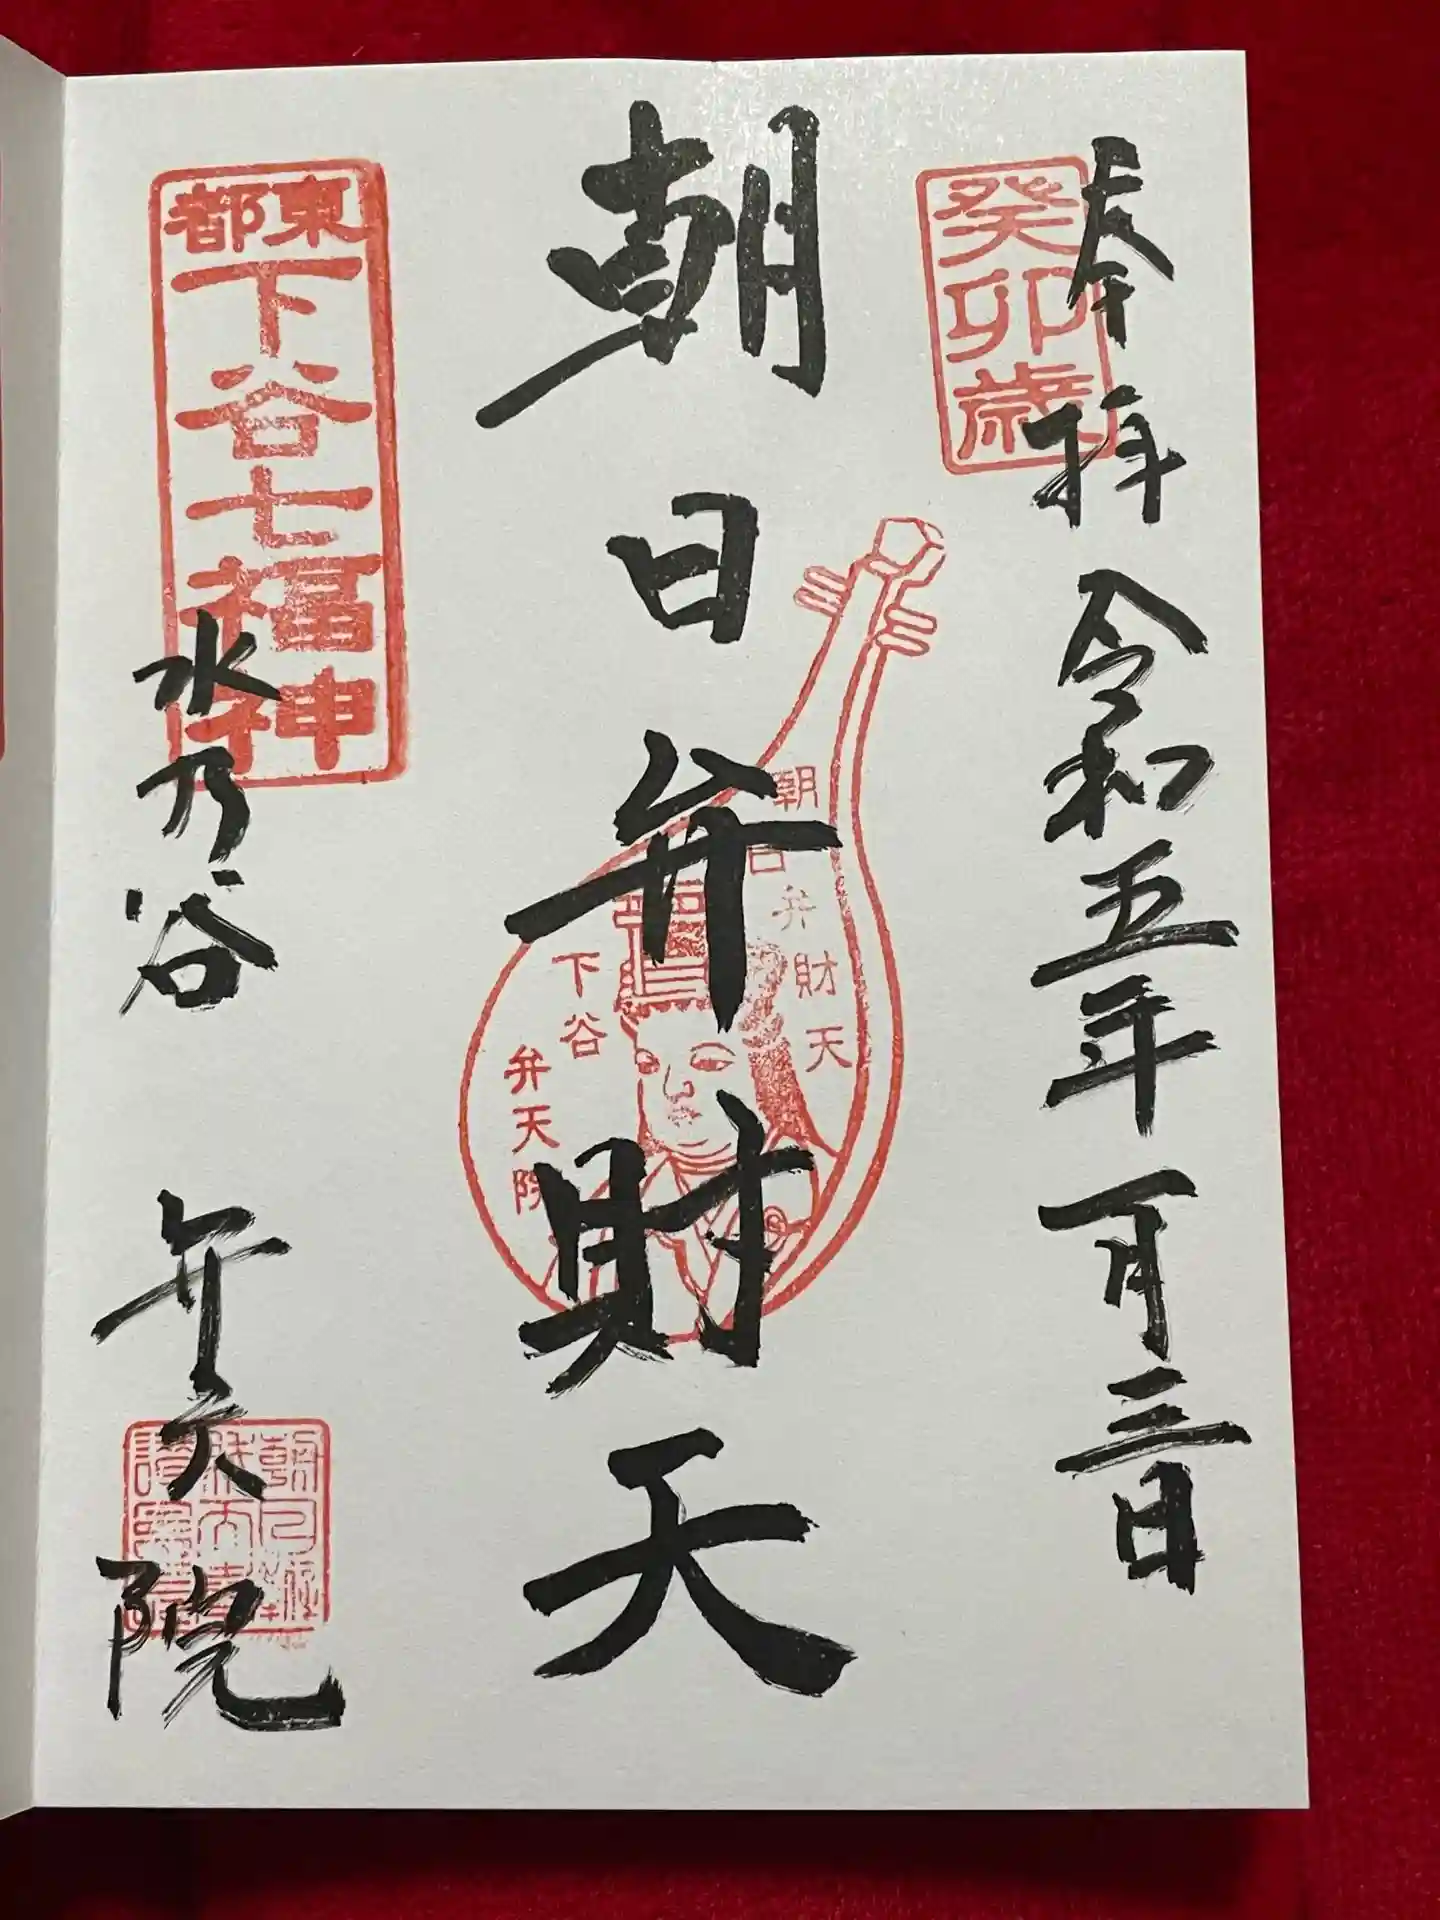 奉拝
令和五年一月三日
癸卯歳
朝日弁財天
朝日弁財天
下谷
弁天院
東都
下谷七福神
水乃谷
弁天院